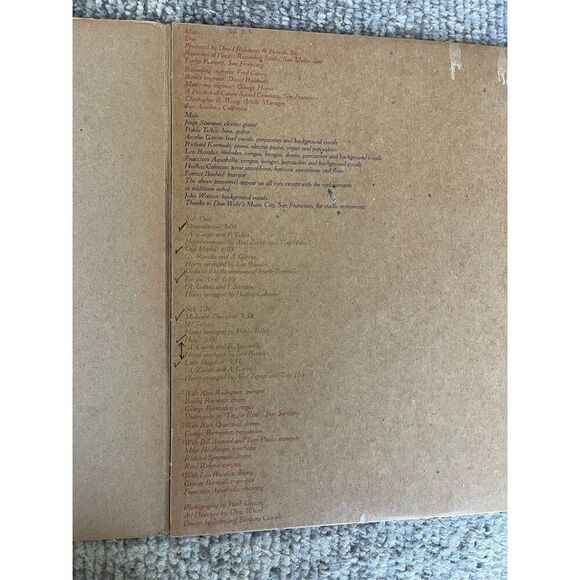 Malo
Dos
Produced by David Rubinson & Friends, Inc.
Recorded at Pacific Recording Studio, San Mateo, and
Funky Features, San Francisco
Recording engineer: Fred Catero
Remix engineer: David Rubinson
Mastering engineer: George Horn
A Product of Catero Sound Company, San Francisco
Christopher B. Wong: Artists Manager,
San Anselmo, California
Malo
Jorge Santana: electric guitar
Pablo Tellez: bass, guitar
Arcelio Garcia: lead vocals, percussion and background vocals
Richard Kermode: piano, electric piano, organ and percussion
Leo Rosales: timbales, congas, bongos, drums, percussion and background vocals
Francisco Aquabella: congas, bongos, percussion and background vocals
Hadley Caliman: tenor saxophone, baritone saxophone and flute
Forrest Buchtel: trumpet
The above personnel appear on all cuts except with the replacements
or additions noted.
John Watson: background vocals
Thanks to Don Wehr's Music City, San Francisco, for studio instruments
Side One
Momotombo 5:06
(A. Zarate and P. Tellez)
Horns arranged by Abel Zarate and Tom Harrell
Oye Mama 6:03
(L. Rosales and A. Garcia)
Horns arranged by Leo Rosales
I'm for Real 6:39
(A. Garcia and J. Santana)
Horns arranged by Hadley Caliman
Side Two
Midnight Thoughts 3:58
(P. Tellez)
Horns arranged by Pablo Tellez
Helá 5:06
(A. Garcia and F. Aquabella)
Horns arranged by Leo Rosales
Latin Bugaloo
(A. Zarate and A. Garcia)
Horns arranged by Abel Zarate and Tom Harrell
With Alex Rodriguez: trumpet
George Bermudez: congas
With Rick Quintanal: drums
George Bermudez: percussion
With Bill Atwood and Tom Poole: trumpets
Mike Heathman: trombone
Richard Spremich: drums
Raul Rekow: congas
With Leo Rosales: drums
George Bermudez: congas
Photography by Herb Greene
Art Direction by Chris Whorf
Design by John and Barbara Casado